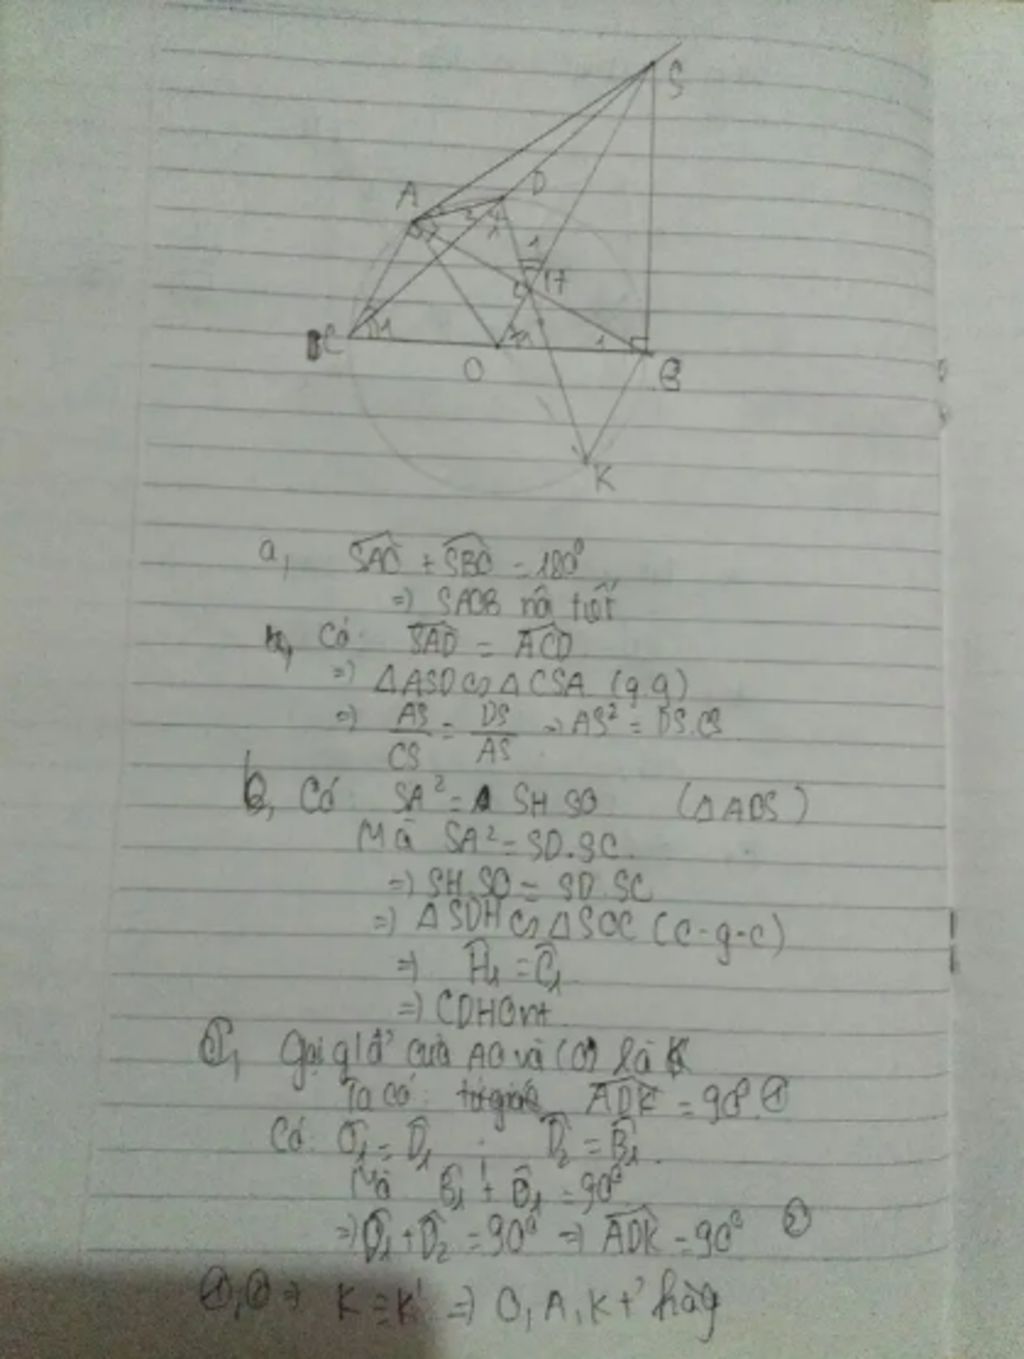 S
A
D
1
H
C
1
O
1
1
B
K
a, SAO + SBO = 180°
=> SAOB nội tiếp
Có: SAD = ACD
=> ΔASD ∽ ΔCSA (g.g)
=> AS/CS = DS/AS => AS² = DS.CS
b, Có SA² = SH SO (ΔAOS)
Mà SA² = SD.SC.
=> SH.SO = SD.SC
=> ΔSDH ∽ ΔSOC (c-g-c)
=> H₁ = C₁
=> CDHO nt
Gọi của AO và (O) là K
Ta có: tứ giác ADK = 90° ①
Có: O₁ = D₁ ; D₂ = B₁.
Mà B₁ + O₁ = 90°
=> D₁ + D₂ = 90° => ADK = 90° ②
①, ② => K ≡ K' => O, A, K t' hàg